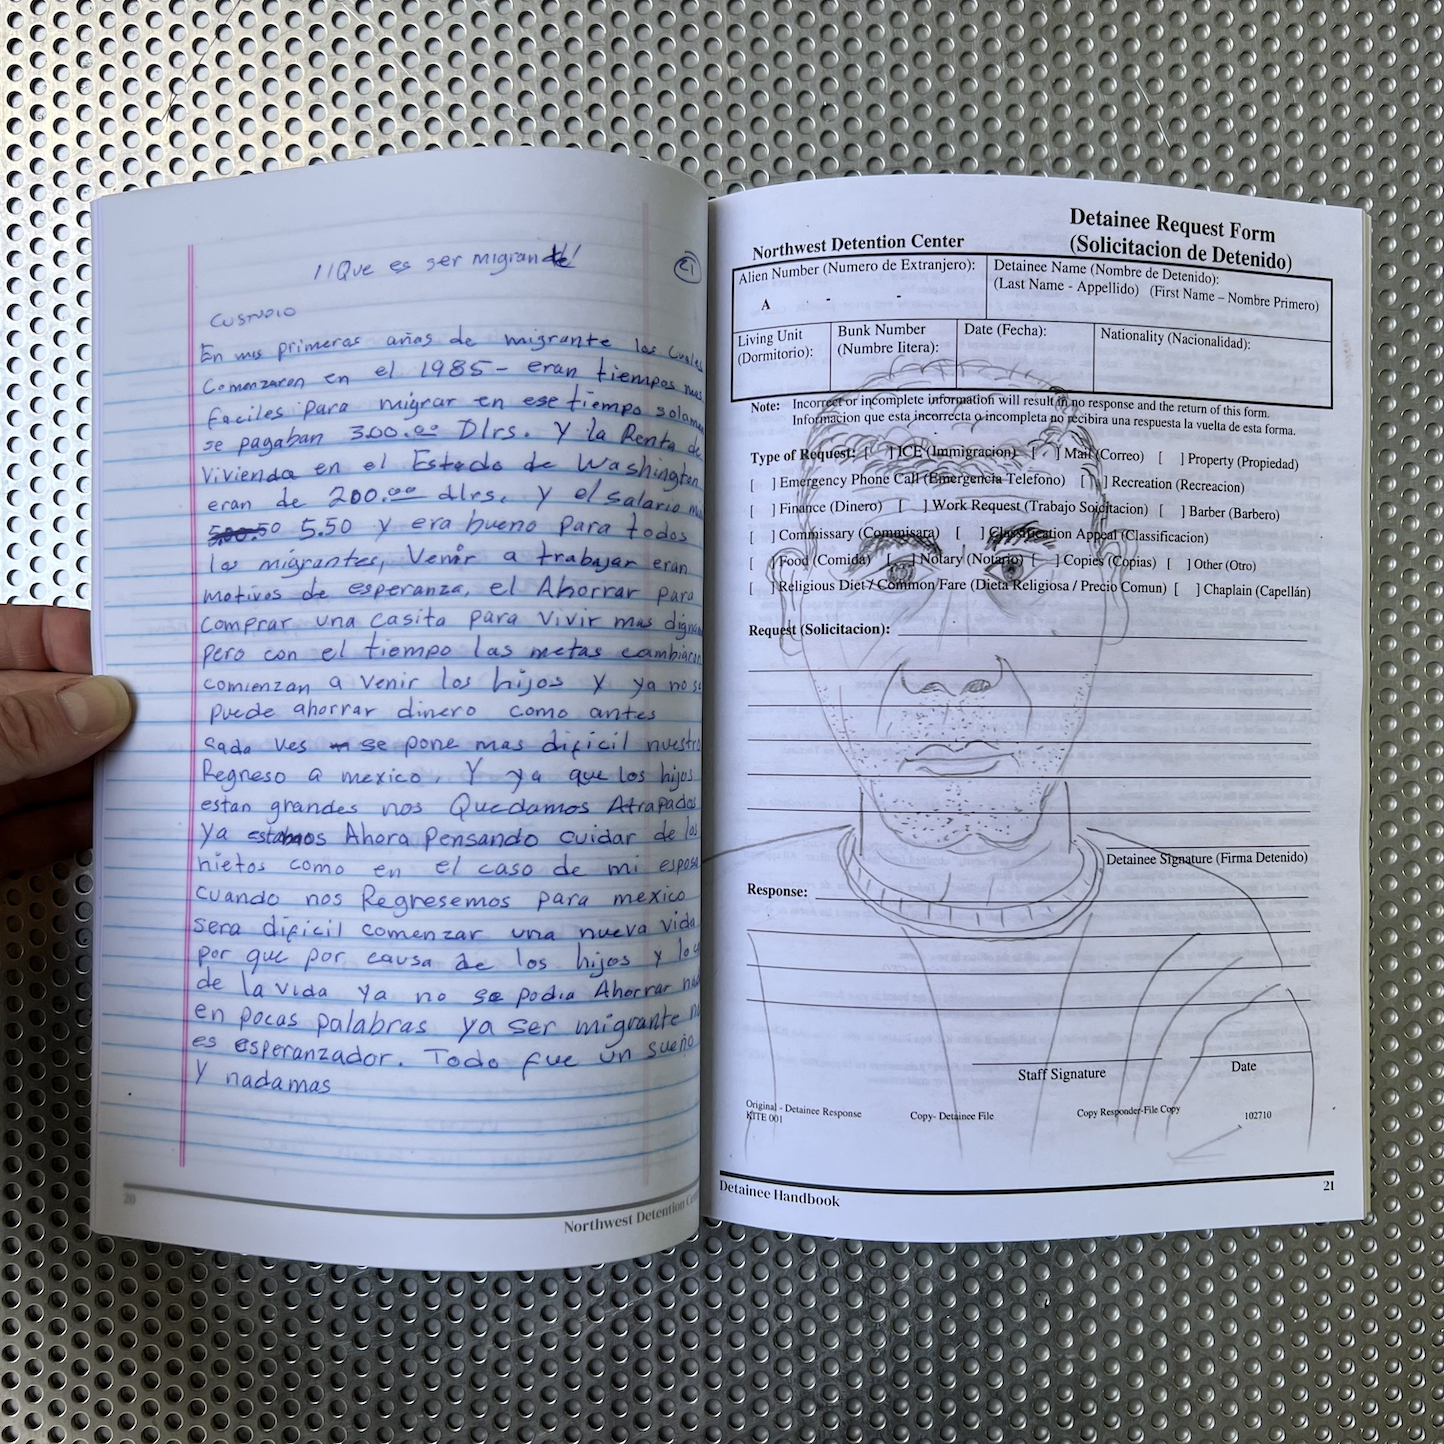 ¡¡Que es ser migrante!
21
CUSTODIO
En mis primeras años de migrante los cuales
Comenzaron en el 1985 - eran tiempos mas
faciles para migrar en ese tiempo
se pagaban 300.00 Dlrs. Y la Renta de
Vivienda en el Estado de Washington
eran de 200.00 dlrs. Y el salario
5.50 y era bueno para todos
los migrantes, Venir a trabajar eran
motivos de esperanza, el Ahorrar para
comprar una casita para Vivir mas
pero con el tiempo las metas cambiaron
comienzan a venir los hijos y ya no se
puede ahorrar dinero como antes
cada ves se pone mas dificil nuestro
Regreso a mexico. Y ya que los hijos
estan grandes nos Quedamos Atrapados
ya estamos Ahora Pensando cuidar de los
nietos como en el caso de mi esposa
cuando nos Regresemos para mexico
sera dificil comenzar una nueva vida
por que por causa de los hijos y
de la vida ya no se podia Ahorrar
en pocas palabras ya ser migrante no
es esperanzador. Todo fue un sueño
Y nadamas
20
Northwest Detention
Northwest Detention Center
Detainee Request Form
(Solicitacion de Detenido)
Alien Number (Numero de Extranjero):
A - -
Detainee Name (Nombre de Detenido):
(Last Name - Appellido) (First Name – Nombre Primero)
Living Unit
(Dormitorio):
Bunk Number
(Numbre Iitera):
Date (Fecha):
Nationality (Nacionalidad):
Note: Incorrect or incomplete information will result in no response and the return of this form.
Informacion que esta incorrecta o incompleta no recibira una respuesta la vuelta de esta forma.
Type of Request: [ ] ICE (Immigracion) [ ] Mail (Correo) [ ] Property (Propiedad)
[ ] Emergency Phone Call (Emergencia Telefono) [ ] Recreation (Recreacion)
[ ] Finance (Dinero) [ ] Work Request (Trabajo Solicitacion) [ ] Barber (Barbero)
[ ] Commissary (Commisara) [ ] Classification Appeal (Classificacion)
[ ] Food (Comida) [ ] Notary (Notario) [ ] Copies (Copias) [ ] Other (Otro)
[ ] Religious Diet / Common Fare (Dieta Religiosa / Precio Comun) [ ] Chaplain (Capellán)
Request (Solicitacion):
Detainee Signature (Firma Detenido)
Response:
Staff Signature
Date
Original - Detainee Response Copy- Detainee File Copy Responder-File Copy 102710
KITE 001
Detainee Handbook
21